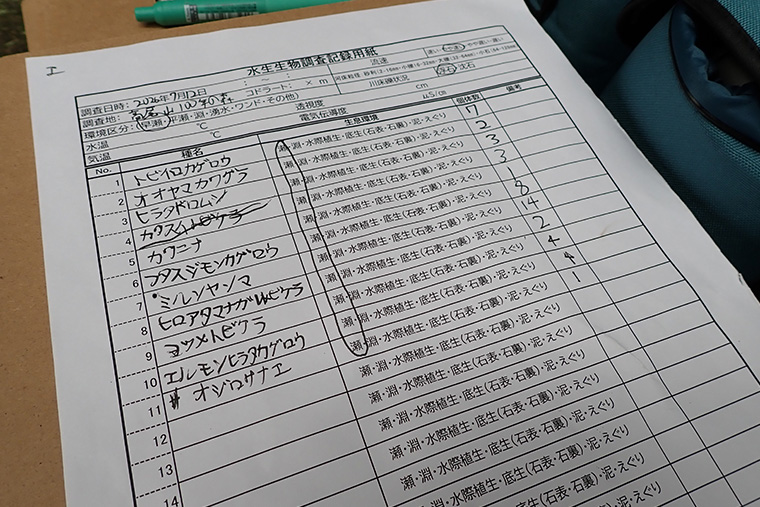 I
水生生物調査記録用紙
調査日時: 2026年9月12日 ~
流速 遅い・中速・やや速い・速い
調査地: 高尾山
コドラート: × m
環境区分: 早瀬・平瀬・淵・湧水・ワンド・その他)
川床礫状況 浮石・沈石
水温 ℃ 透視度 cm
気温 ℃ 電気伝導度 μS/cm
No. 種名 生息環境 個体数 備考
1 トビイロカゲロウ 瀬・淵・水際植生・底生(石表・石裏)・泥・えぐり 7
2 オオヤマカワゲラ 瀬・淵・水際植生・底生(石表・石裏)・泥・えぐり 2
3 ヒラタドロムシ 瀬・淵・水際植生・底生(石表・石裏)・泥・えぐり 3
4 瀬・淵・水際植生・底生(石表・石裏)・泥・えぐり 3
5 カワニナ 瀬・淵・水際植生・底生(石表・石裏)・泥・えぐり 1
6 フタスジモンカゲロウ 瀬・淵・水際植生・底生(石表・石裏)・泥・えぐり 8
7 ミルンヤンマ 瀬・淵・水際植生・底生(石表・石裏)・泥・えぐり 14
8 ヒロアタマナガレトビケラ 瀬・淵・水際植生・底生(石表・石裏)・泥・えぐり 2
9 ヨツメトビケラ 瀬・淵・水際植生・底生(石表・石裏)・泥・えぐり 4
10 エルモンヒラタカゲロウ 瀬・淵・水際植生・底生(石表・石裏)・泥・えぐり 4
11 オジロサナエ 瀬・淵・水際植生・底生(石表・石裏)・泥・えぐり 1
12 瀬・淵・水際植生・底生(石表・石裏)・泥・えぐり
13 瀬・淵・水際植生・底生(石表・石裏)・泥・えぐり
14 瀬・淵・水際植生・底生(石表・石裏)・泥・えぐり